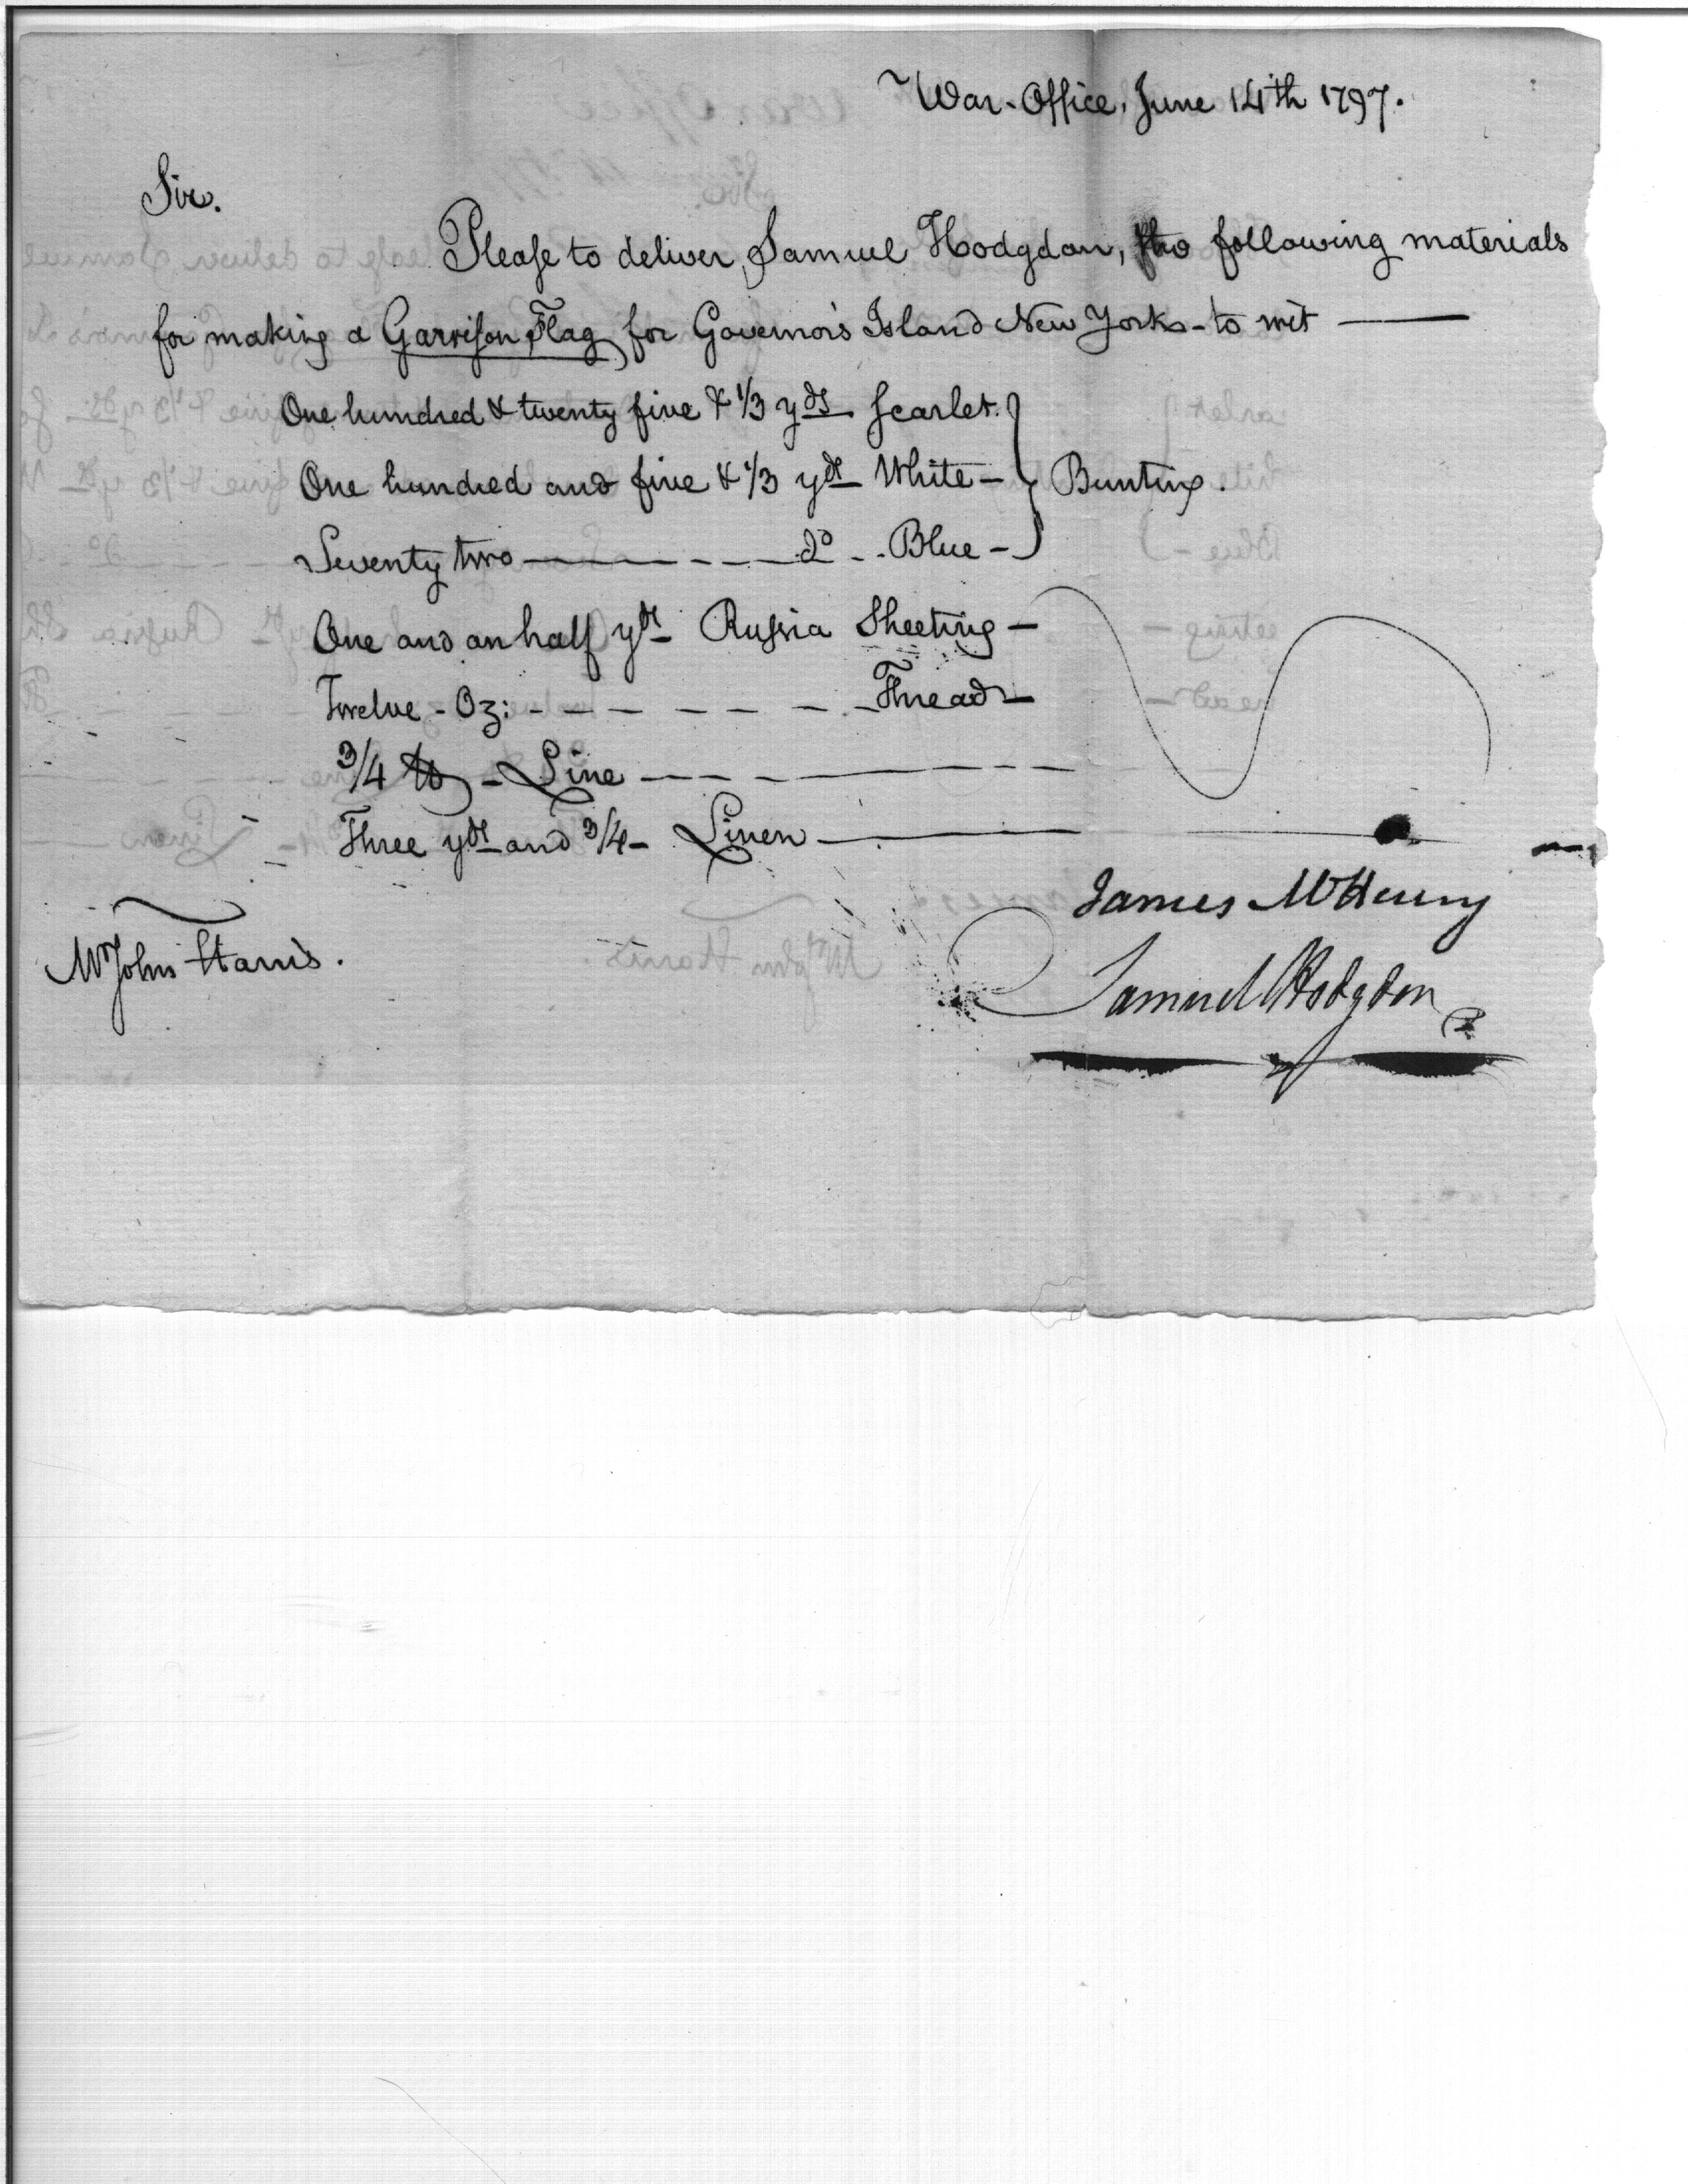 War-Office, June 14th 1797.
Sir.
Please to deliver, Samuel Hodgdon, the following materials
for making a Garrison Flag for Governor's Island New York - to wit —
One hundred & twenty five & 1/3 yds Scarlet.
One hundred and five & 1/3 yds White - } Bunting.
Seventy two — — — — do - - Blue -
One and an half yds Russia Sheeting -
Twelve - Oz: - - - - - - - Thread -
3/4 lb - Line — — — —
Three yds and 3/4 - Linen —
James McHenry
Mr John Harris.
Samuel Hodgdon